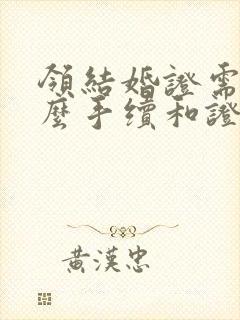 領結婚證需
麼手續和證
黃漢忠